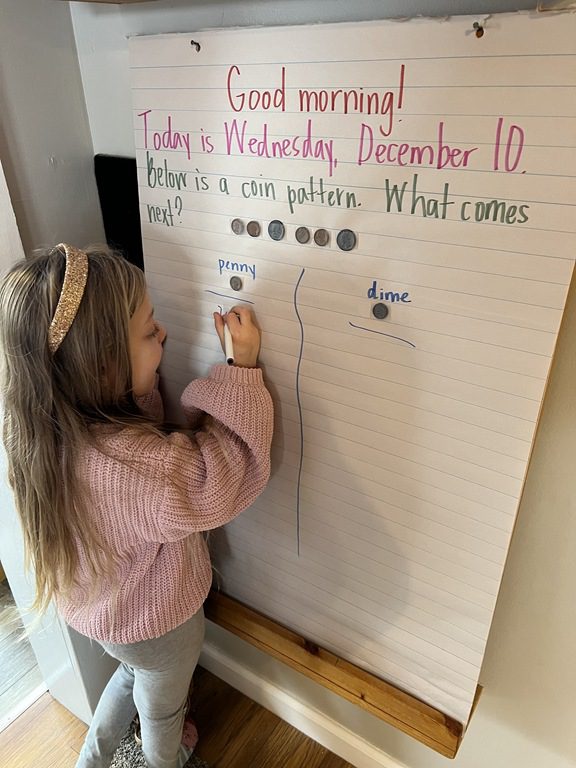 Good morning!
Today is Wednesday, December 10.
Below is a coin pattern. What comes
next?
penny
dime